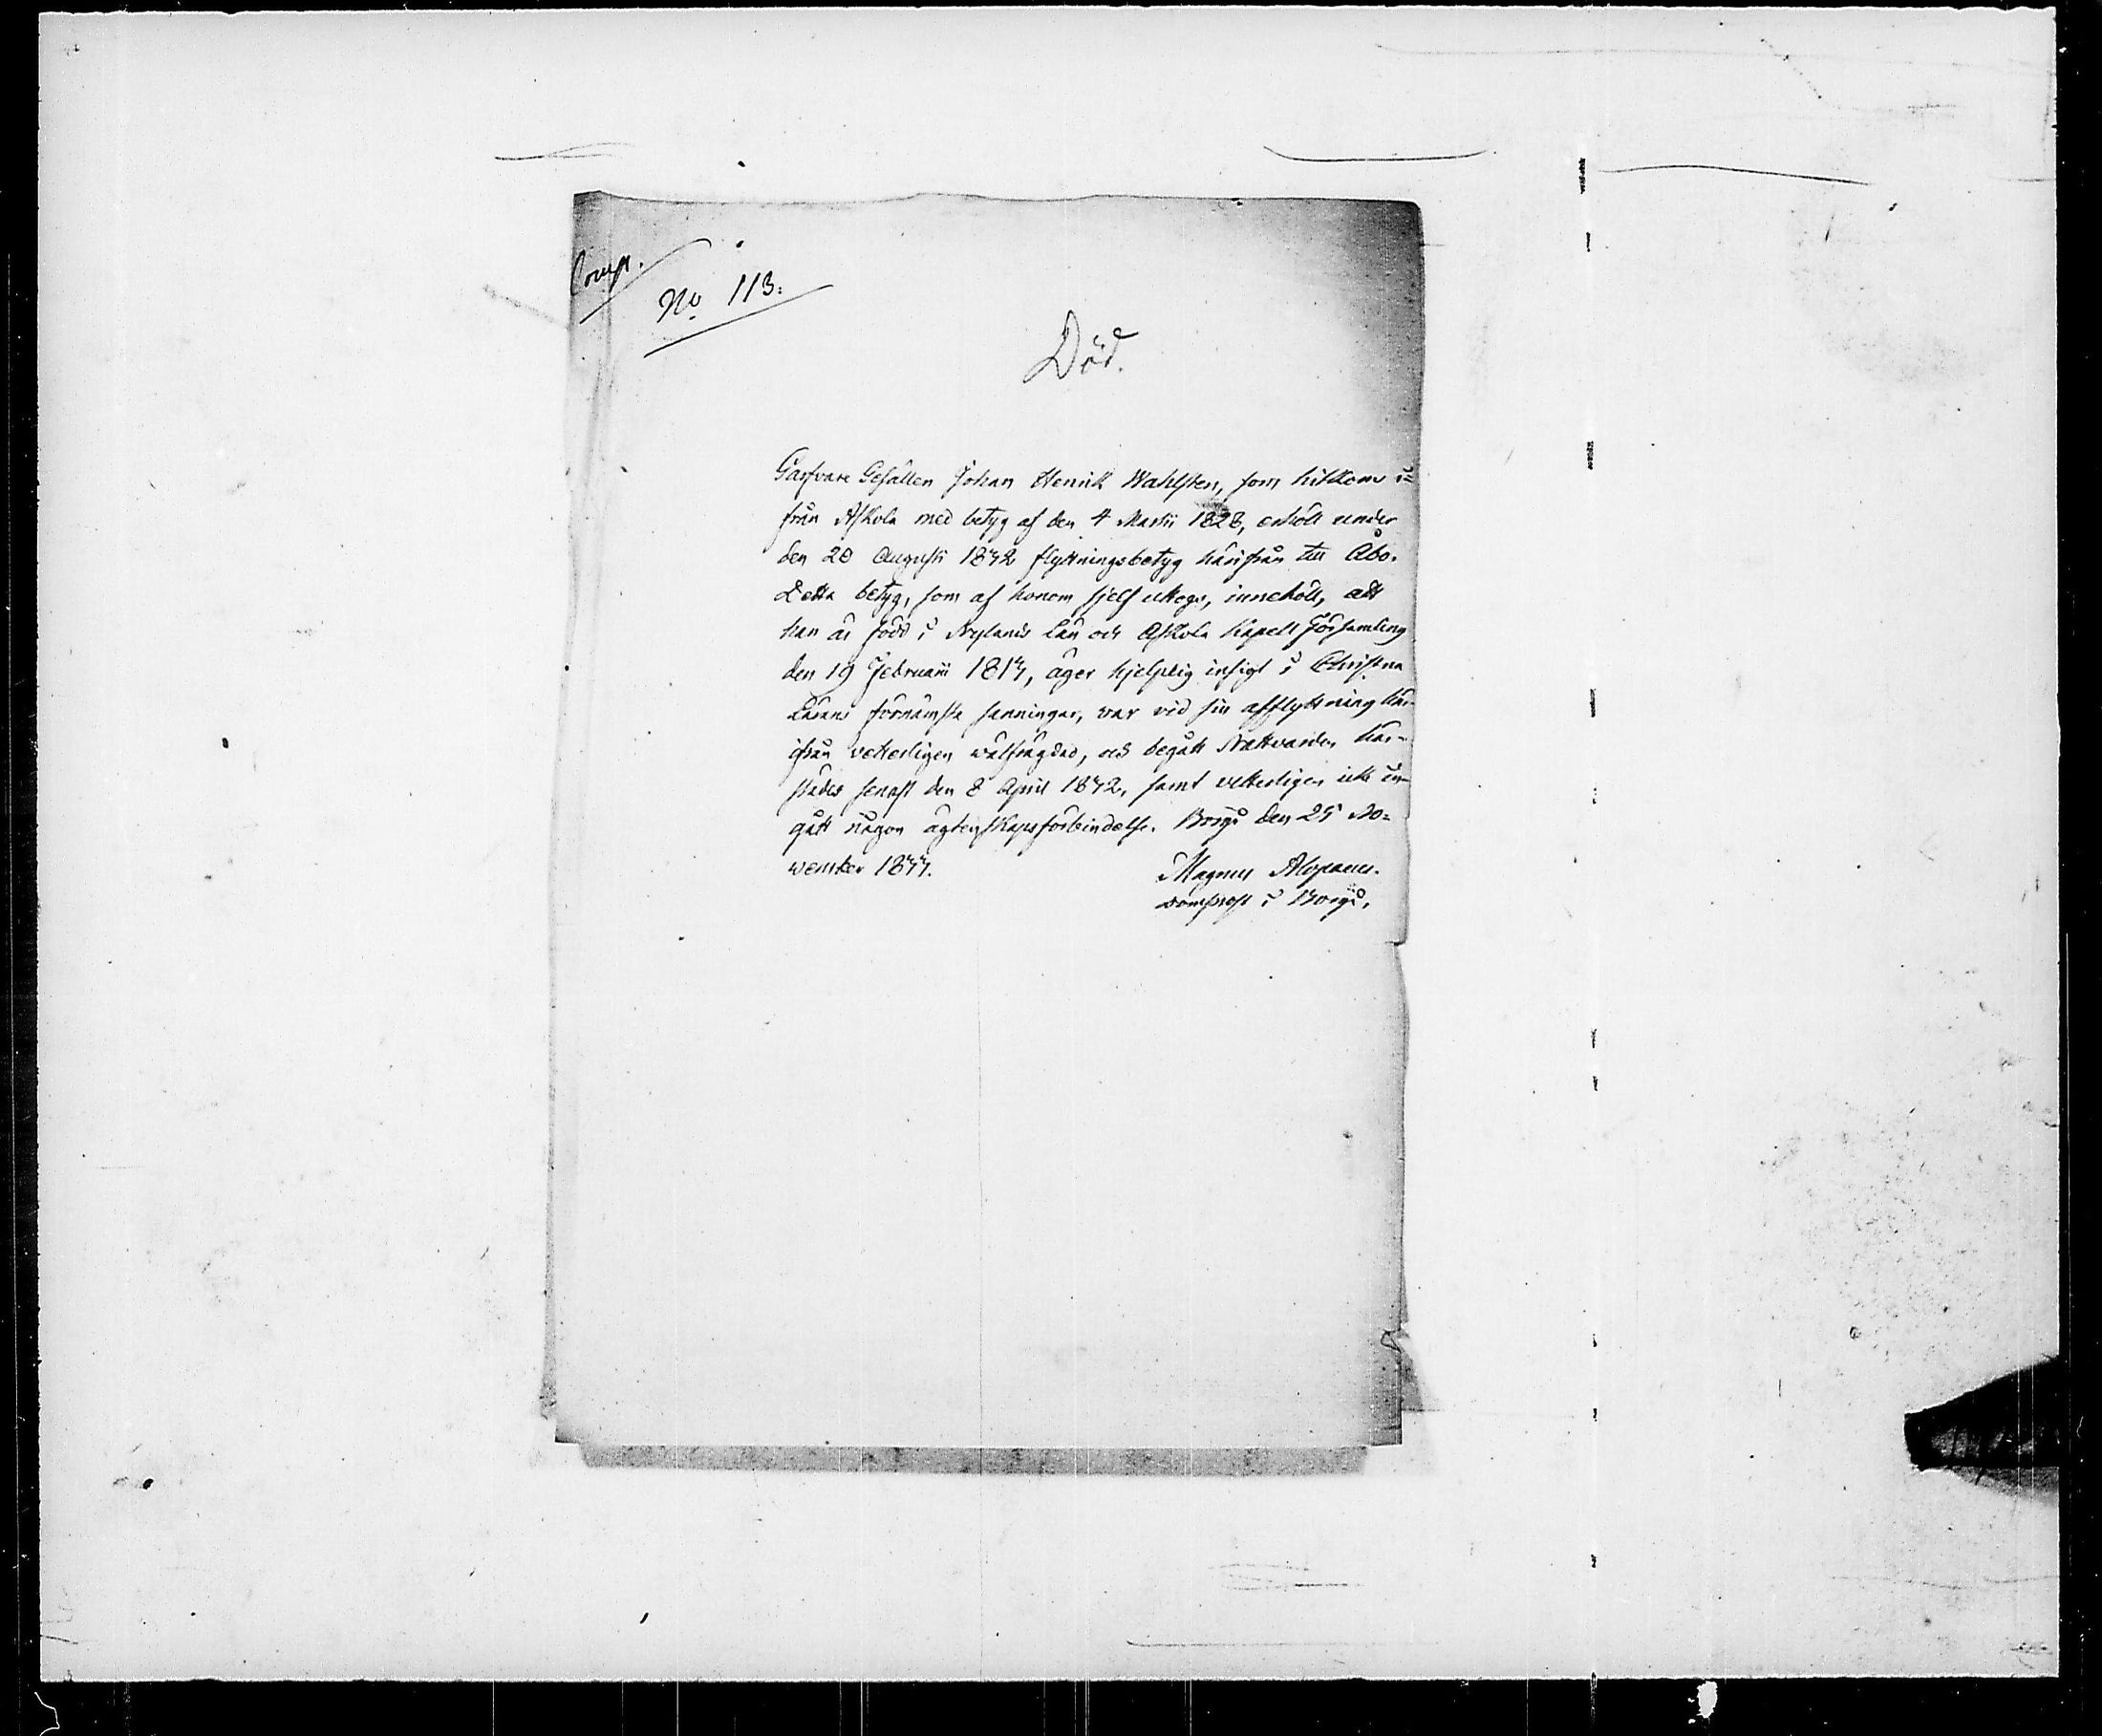 Comp.
No 113:
Död.
Garfvare Gesällen Johan Henrik Wahlsten, som hitkom i=
från Askola med betyg af den 4 Martii 1828, erhöll under
den 20 Augusti 1842 flyttningsbetyg härifrån till Åbo.
Detta betyg, som af honom sjelf uttogs, innehöll, att
han är född i Nylands Län och Askola Kapell Församling
den 19 Februarii 1814, äger hjelplig insigt i Christna
Lärans förnämsta sanningar, var vid sin afflyttning här-
ifrån veterligen wälfrägdad, och begått Nattvarden här-
städes senast den 8 April 1842, samt vetterligen icke in-
gått någon ägtenskapsförbindelse. Borgå den 25 No=
wember 1844.
Magnus Alopaeus.
domprost i Borgå.